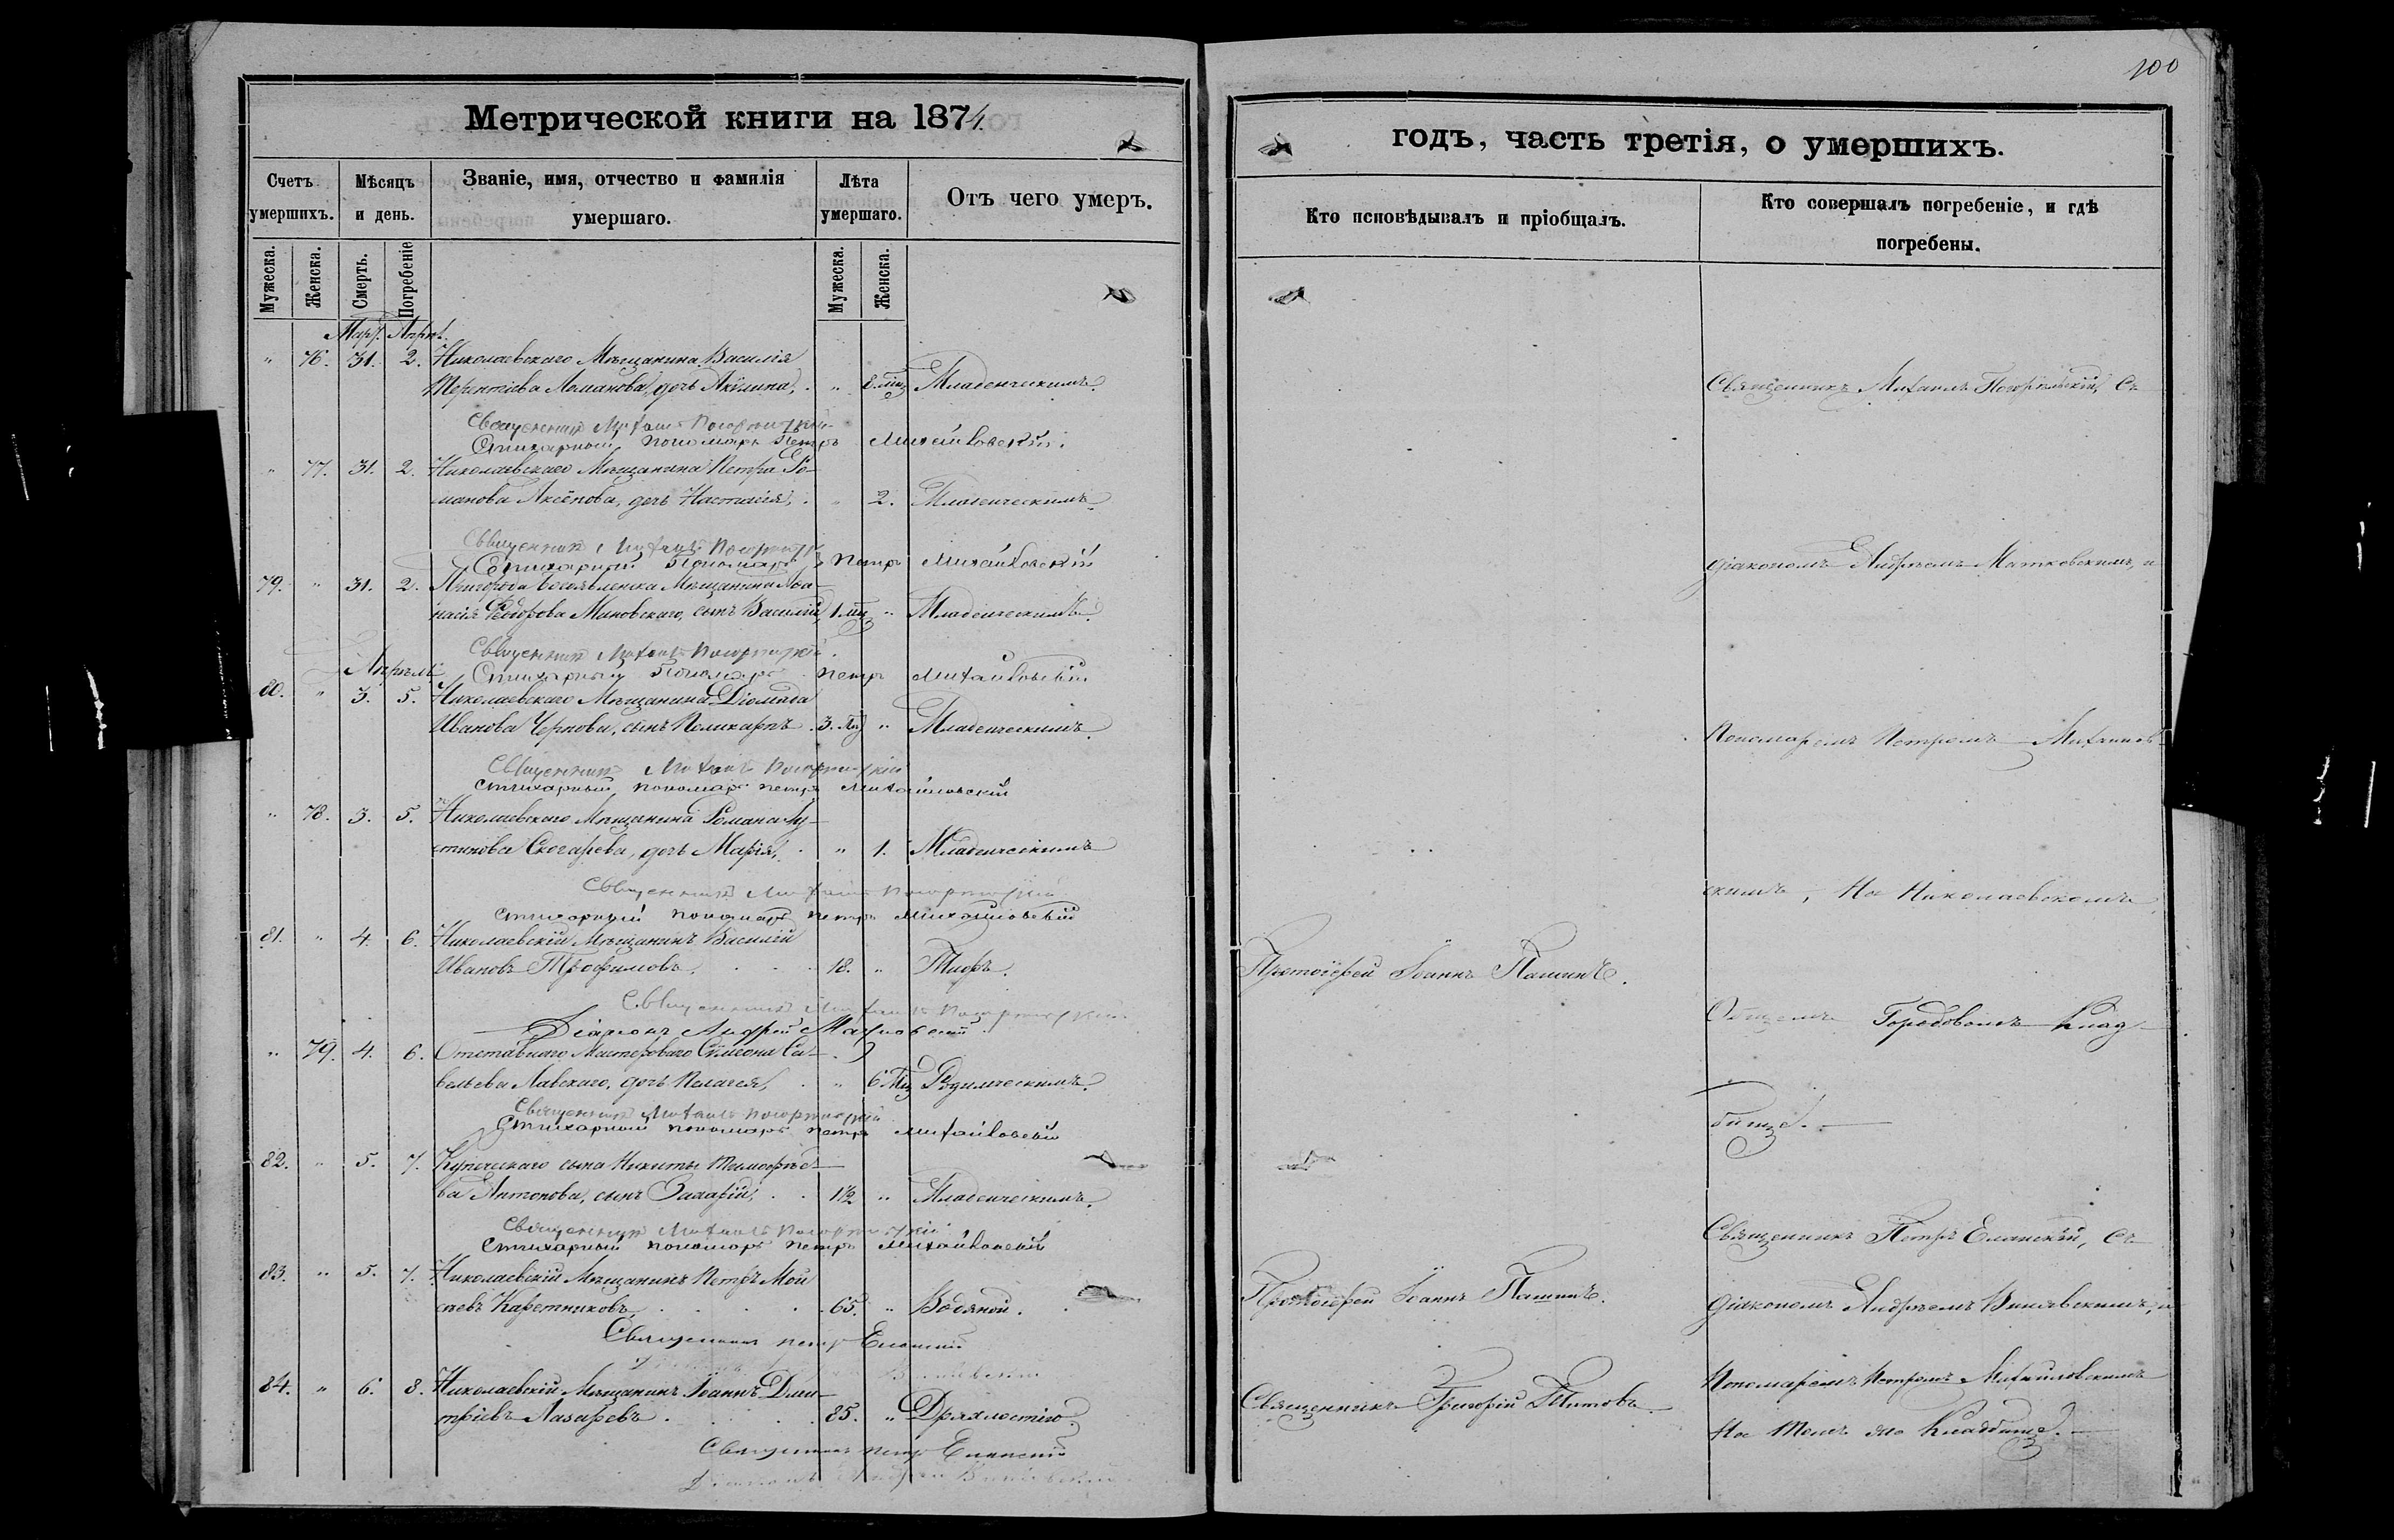 100
Метрической книги на 1874.
годъ, часть третія, о умершихъ.
Счетъ умершихъ.
Мѣсяцъ и день.
Званіе, имя, отчество и фамилія умершаго.
Лѣта умершаго.
Отъ чего умеръ.
Кто исповѣдывалъ и пріобщалъ.
Кто совершалъ погребеніе, и гдѣ погребены.
Мужеска.
Женска.
Смерть.
Погребеніе
Мужеска.
Женска.
Март. Апрѣл.
" 76. 31. 2. Николаевскаго Мѣщанина Василія
Терентіева Ломанова, дочь Акѵлина, . " 8. мц Младенческимъ.
Священникъ Михаилъ
Стихарный пономарь Петръ Михайловскій.
" 77. 31. 2. Николаевскаго Мѣщанина Петра Ро-
манова Аксёнова, дочь Настасія, . " 2. Младенческимъ.
Священникъ Михаилъ
Стихарный Пономарь Петръ Михайловскій
79. " 31. 2. Пригорода Богоявленска Мѣщанина Аѳа-
насія Ѳеодорова Мановскаго, сынъ Василій, 1 мц " Младенческимъ.
Священникъ Михаилъ
Апрѣль
Стихарный Пономарь Петръ Михайловскій
80. " 3. 5. Николаевскаго Мѣщанина Діомида
Иванова Чернова, сынъ Поликарпъ. 3. мц " Младенческимъ.
Священникъ Михаилъ
Стихарный пономарь петръ Михайловскій
" 78. 3. 5. Николаевскаго Мѣщанина Романа Іу-
стинова Снегарева, дочь Марія, . " 1. Младенческимъ
Священникъ Михаилъ
Стихарный пономарь петръ Михайловскій
81. " 4. 6. Николаевскій Мѣщанинъ Василій
Ивановъ Трофимовъ. 18. " Тифъ.
Священникъ Михаилъ
Діаконъ Андрей
" 79. 4. 6. Отставнаго Мастероваго Сѵмеона Са-
вельева Лавскаго, дочь Пелагея, . " 6 мц Родимческимъ.
Священникъ Михаилъ
Стихарный пономарь петръ Михайловскій
82. " 5. 7. Купеческаго сына Никиты Тимоѳѣе-
ва Антонова, сынъ Захарій, . . 1½ " Младенческимъ.
Священникъ Михаилъ
Стихарный пономарь петръ Михайловскій
83. " 5. 7. Николаевскій Мѣщанинъ Петръ Мои-
сѣевъ Каретниковъ. 65. " Водяной.
Священникъ петръ Еланскій
84. " 6. 8. Николаевскій Мѣщанинъ Іоаннъ Дми-
тріевъ Лазаревъ. 85. " Дряхлостію.
Священникъ петръ Еланскій
Діаконъ Андрей
Протоіерей Іоаннъ Пашинъ.
Протоіерей Іоаннъ Пашинъ.
Священникъ Григорій Титовъ.
Священникъ Михаилъ Погорѣльскій, съ
діакономъ Андреемъ Матковскимъ, и
Пономаремъ Петромъ Михайлов-
скимъ, На Николаевскомъ
Общемъ Городовомъ Клад-
бищѣ.
Священникъ Петръ Еланскій, съ
діакономъ Андреемъ Винявскимъ, и
Пономаремъ Петромъ Михайловскимъ
На томъ же Кладбищѣ.